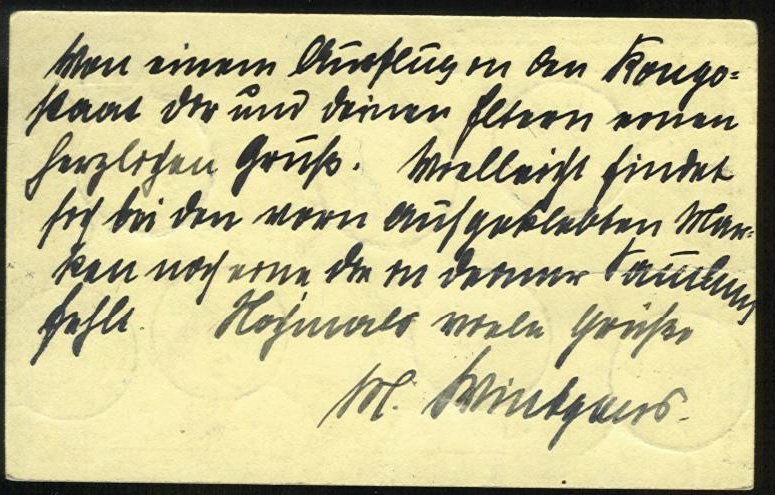 Von einem Ausflug in den Kongo=
staat dir und deinen Eltern einen
herzlichen Gruß. Vielleicht findet
sich bei den vorn aufgeklebten Mar-
ken noch eine die in deiner Sammlung
fehlt. Nochmals viele Grüße
M. Wintgens.